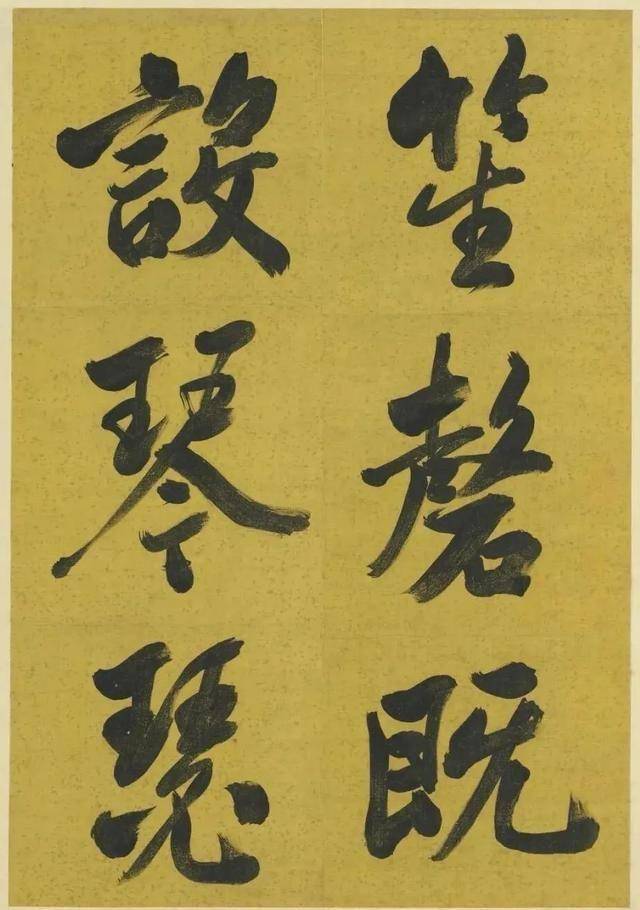 笙磬既
設琴瑟